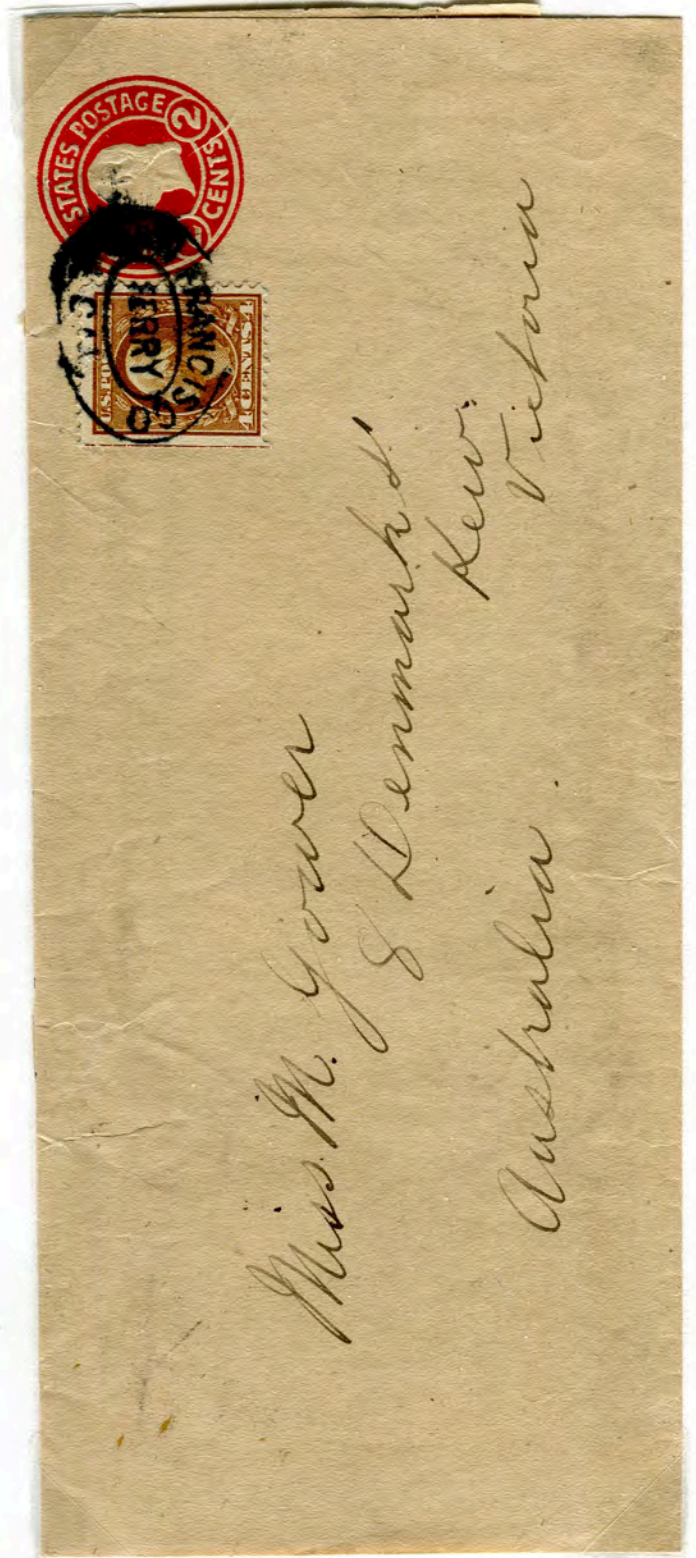 STATES POSTAGE
2 CENTS
FRANCISCO
FERRY
CAL
U.S. PO
4 CENTS 4
Miss M. Gower
8 Denmark St
Kew.
Victoria
Australia.